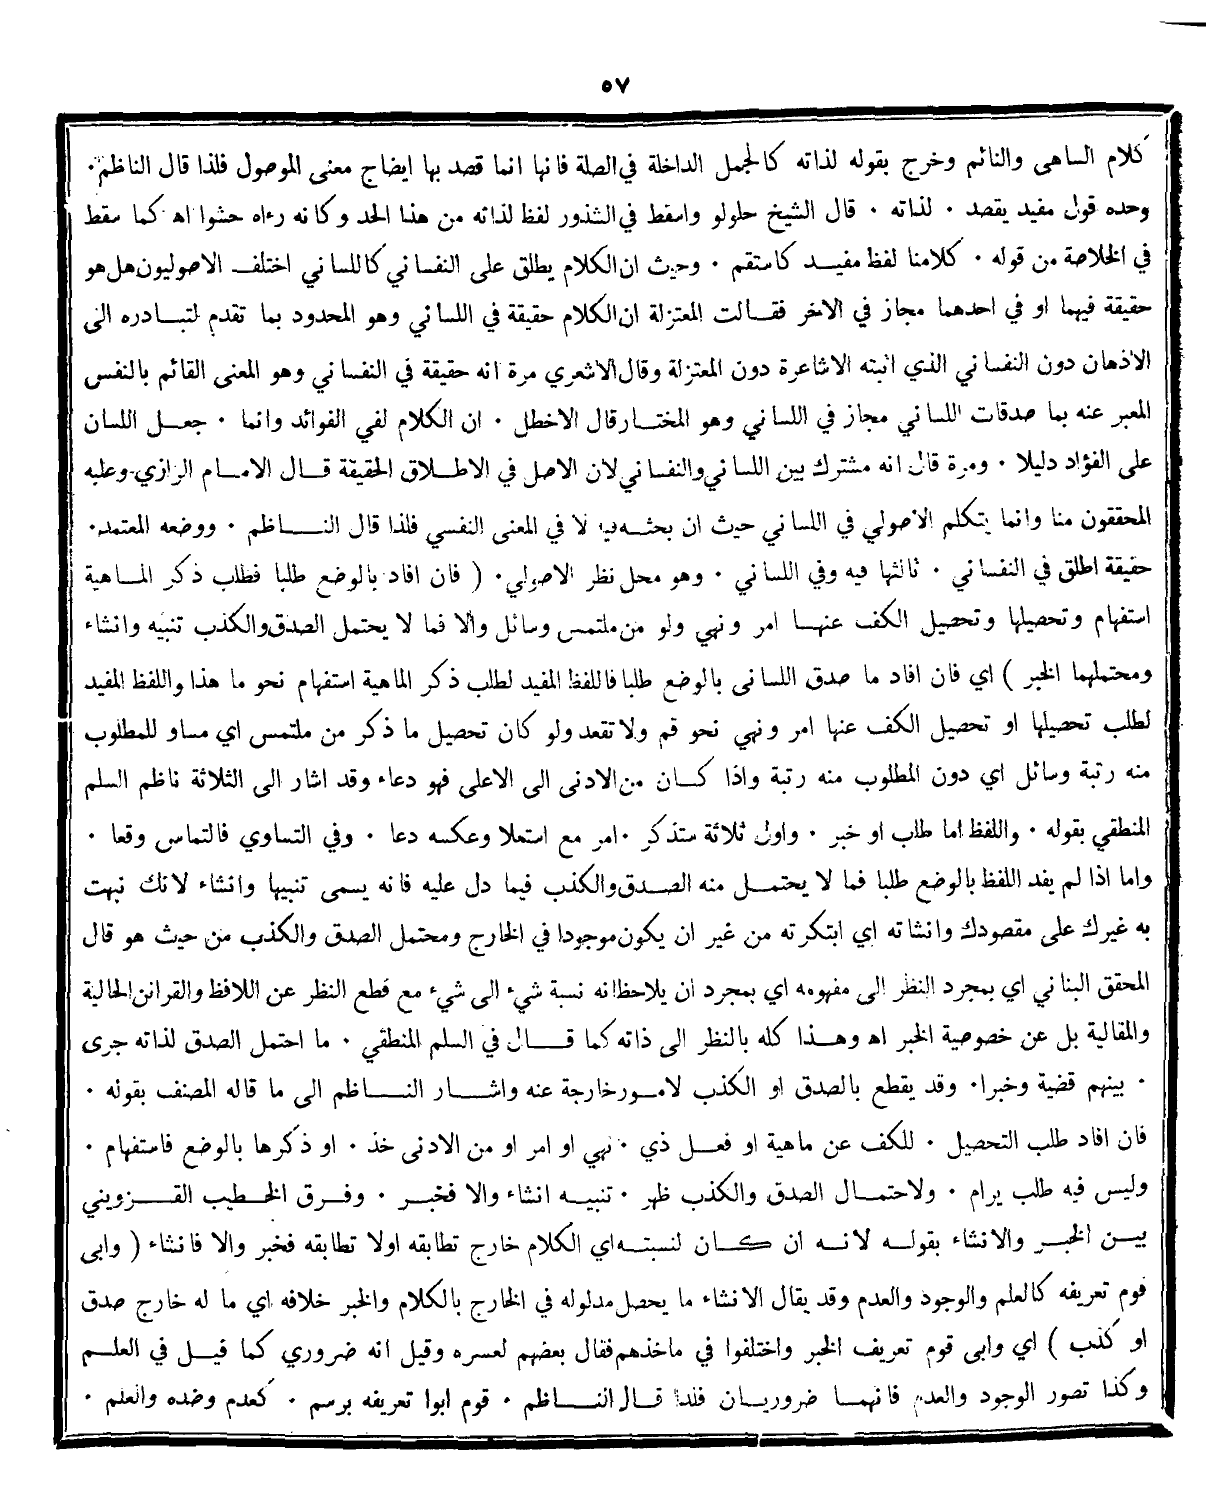 ٥٧
كلام الساهى والنائم وخرج بقوله لذاته كالجمل الداخلة في الصلة فانها انما قصد بها ايضاح معنى الموصول فلذا قال الناظم ·
وحده قول مفيد يقصد · لذاته · قال الشيخ حلولو واسقط في الشذور لفظ لذاته من هذا الحد وكانه رءاه حشوا اه كما سقط
في الخلاصة من قوله · كلامنا لفظ مفيد كاستقم · وحيث ان الكلام يطلق على النفساني كاللساني اختلف الاصوليون هل هو
حقيقة فيهما او في احدهما مجاز في الاخر فقالت المعتزلة ان الكلام حقيقة في اللساني وهو المحدود بما تقدم لتبادره الى
الاذهان دون النفساني الذي اثبته الاشاعرة دون المعتزلة وقال الاشعري مرة انه حقيقة في النفساني وهو المعنى القائم بالنفس
المعبر عنه بما صدقات اللساني مجاز في اللساني وهو المختار قال الاخطل · ان الكلام لفي الفوائد وانما · جعل اللسان
على الفؤاد دليلا · ومرة قال انه مشترك بين اللساني والنفساني لان الاصل في الاطلاق الحقيقة قال الامام الرازي وعليه
المحققون منا وانما يتكلم الاصولي في اللساني حيث ان بحثه فيه لا في المعنى النفسي فلذا قال الناظم · ووضعه المعتمد ·
حقيقة اطلق في النفساني · ثالثها فيه وفي اللساني · وهو محل نظر الاصولي · ( فان افاد بالوضع طلبا فطلب ذكر الماهية
استفهام وتحصيلها وتحصيل الكف عنها امر ونهي ولو من ملتمس وسائل والا فما لا يحتمل الصدق والكذب تنبيه وانشاء
ومحتملهما الخبر ) اي فان افاد ما صدق اللسانى بالوضع طلبا فاللفظ المفيد لطلب ذكر الماهية استفهام نحو ما هذا واللفظ المفيد
لطلب تحصيلها او تحصيل الكف عنها امر ونهي نحو قم ولا تقعد ولو كان تحصيل ما ذكر من ملتمس اي مساو للمطلوب
منه رتبة وسائل اي دون المطلوب منه رتبة واذا كان من الادنى الى الاعلى فهو دعاء وقد اشار الى الثلاثة ناظم السلم
المنطقي بقوله · واللفظ اما طلب او خبر · واول ثلاثة ستذكر · امر مع استعلا وعكسه دعا · وفي التساوي فالتماس وقعا ·
واما اذا لم يفد اللفظ بالوضع طلبا فما لا يحتمل منه الصدق والكذب فيما دل عليه فانه يسمى تنبيها وانشاء لانك نبهت
به غيرك على مقصودك وانشاته اي ابتكرته من غير ان يكون موجودا في الخارج ومحتمل الصدق والكذب من حيث هو قال
المحقق البناني اي بمجرد النظر الى مفهومه اي بمجرد ان يلاحظ انه نسبة شيء الى شيء مع قطع النظر عن اللافظ والقرائن الحالية
والمقالية بل عن خصوصية الخبر اه وهذا كله بالنظر الى ذاته كما قال في السلم المنطقي · ما احتمل الصدق لذاته جرى
· بينهم قضية وخبرا · وقد يقطع بالصدق او الكذب لامور خارجة عنه واشار الناظم الى ما قاله المصنف بقوله ·
فان افاد طلب التحصيل · للكف عن ماهية او فعل ذي · نهي او امر او من الادنى خذ · او ذكرها بالوضع فاستفهام ·
وليس فيه طلب يرام · ولاحتمال الصدق والكذب ظهر · تنبيه انشاء والا فخبر · وفرق الخطيب القزويني
بين الخبر والانشاء بقوله لانه ان كان لنسبته اي الكلام خارج تطابقه اولا تطابقه فخبر والا فانشاء ( وابى
قوم تعريفه كالعلم والوجود والعدم وقد يقال الانشاء ما يحصل مدلوله في الخارج بالكلام والخبر خلافه اي ما له خارج صدق
او كذب ) اي وابى قوم تعريف الخبر واختلفوا في ماخذهم فقال بعضهم لعسره وقيل انه ضروري كما قيل في العلم
وكذا تصور الوجود والعدم فانهما ضروريان فلذا قال الناظم · قوم ابوا تعريفه برسم · كعدم وضده والعلم ·